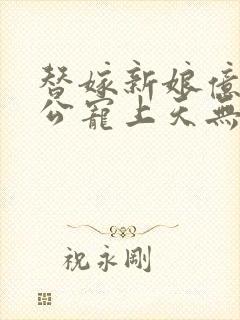 替嫁新娘億
公寵上天無
祝永剛